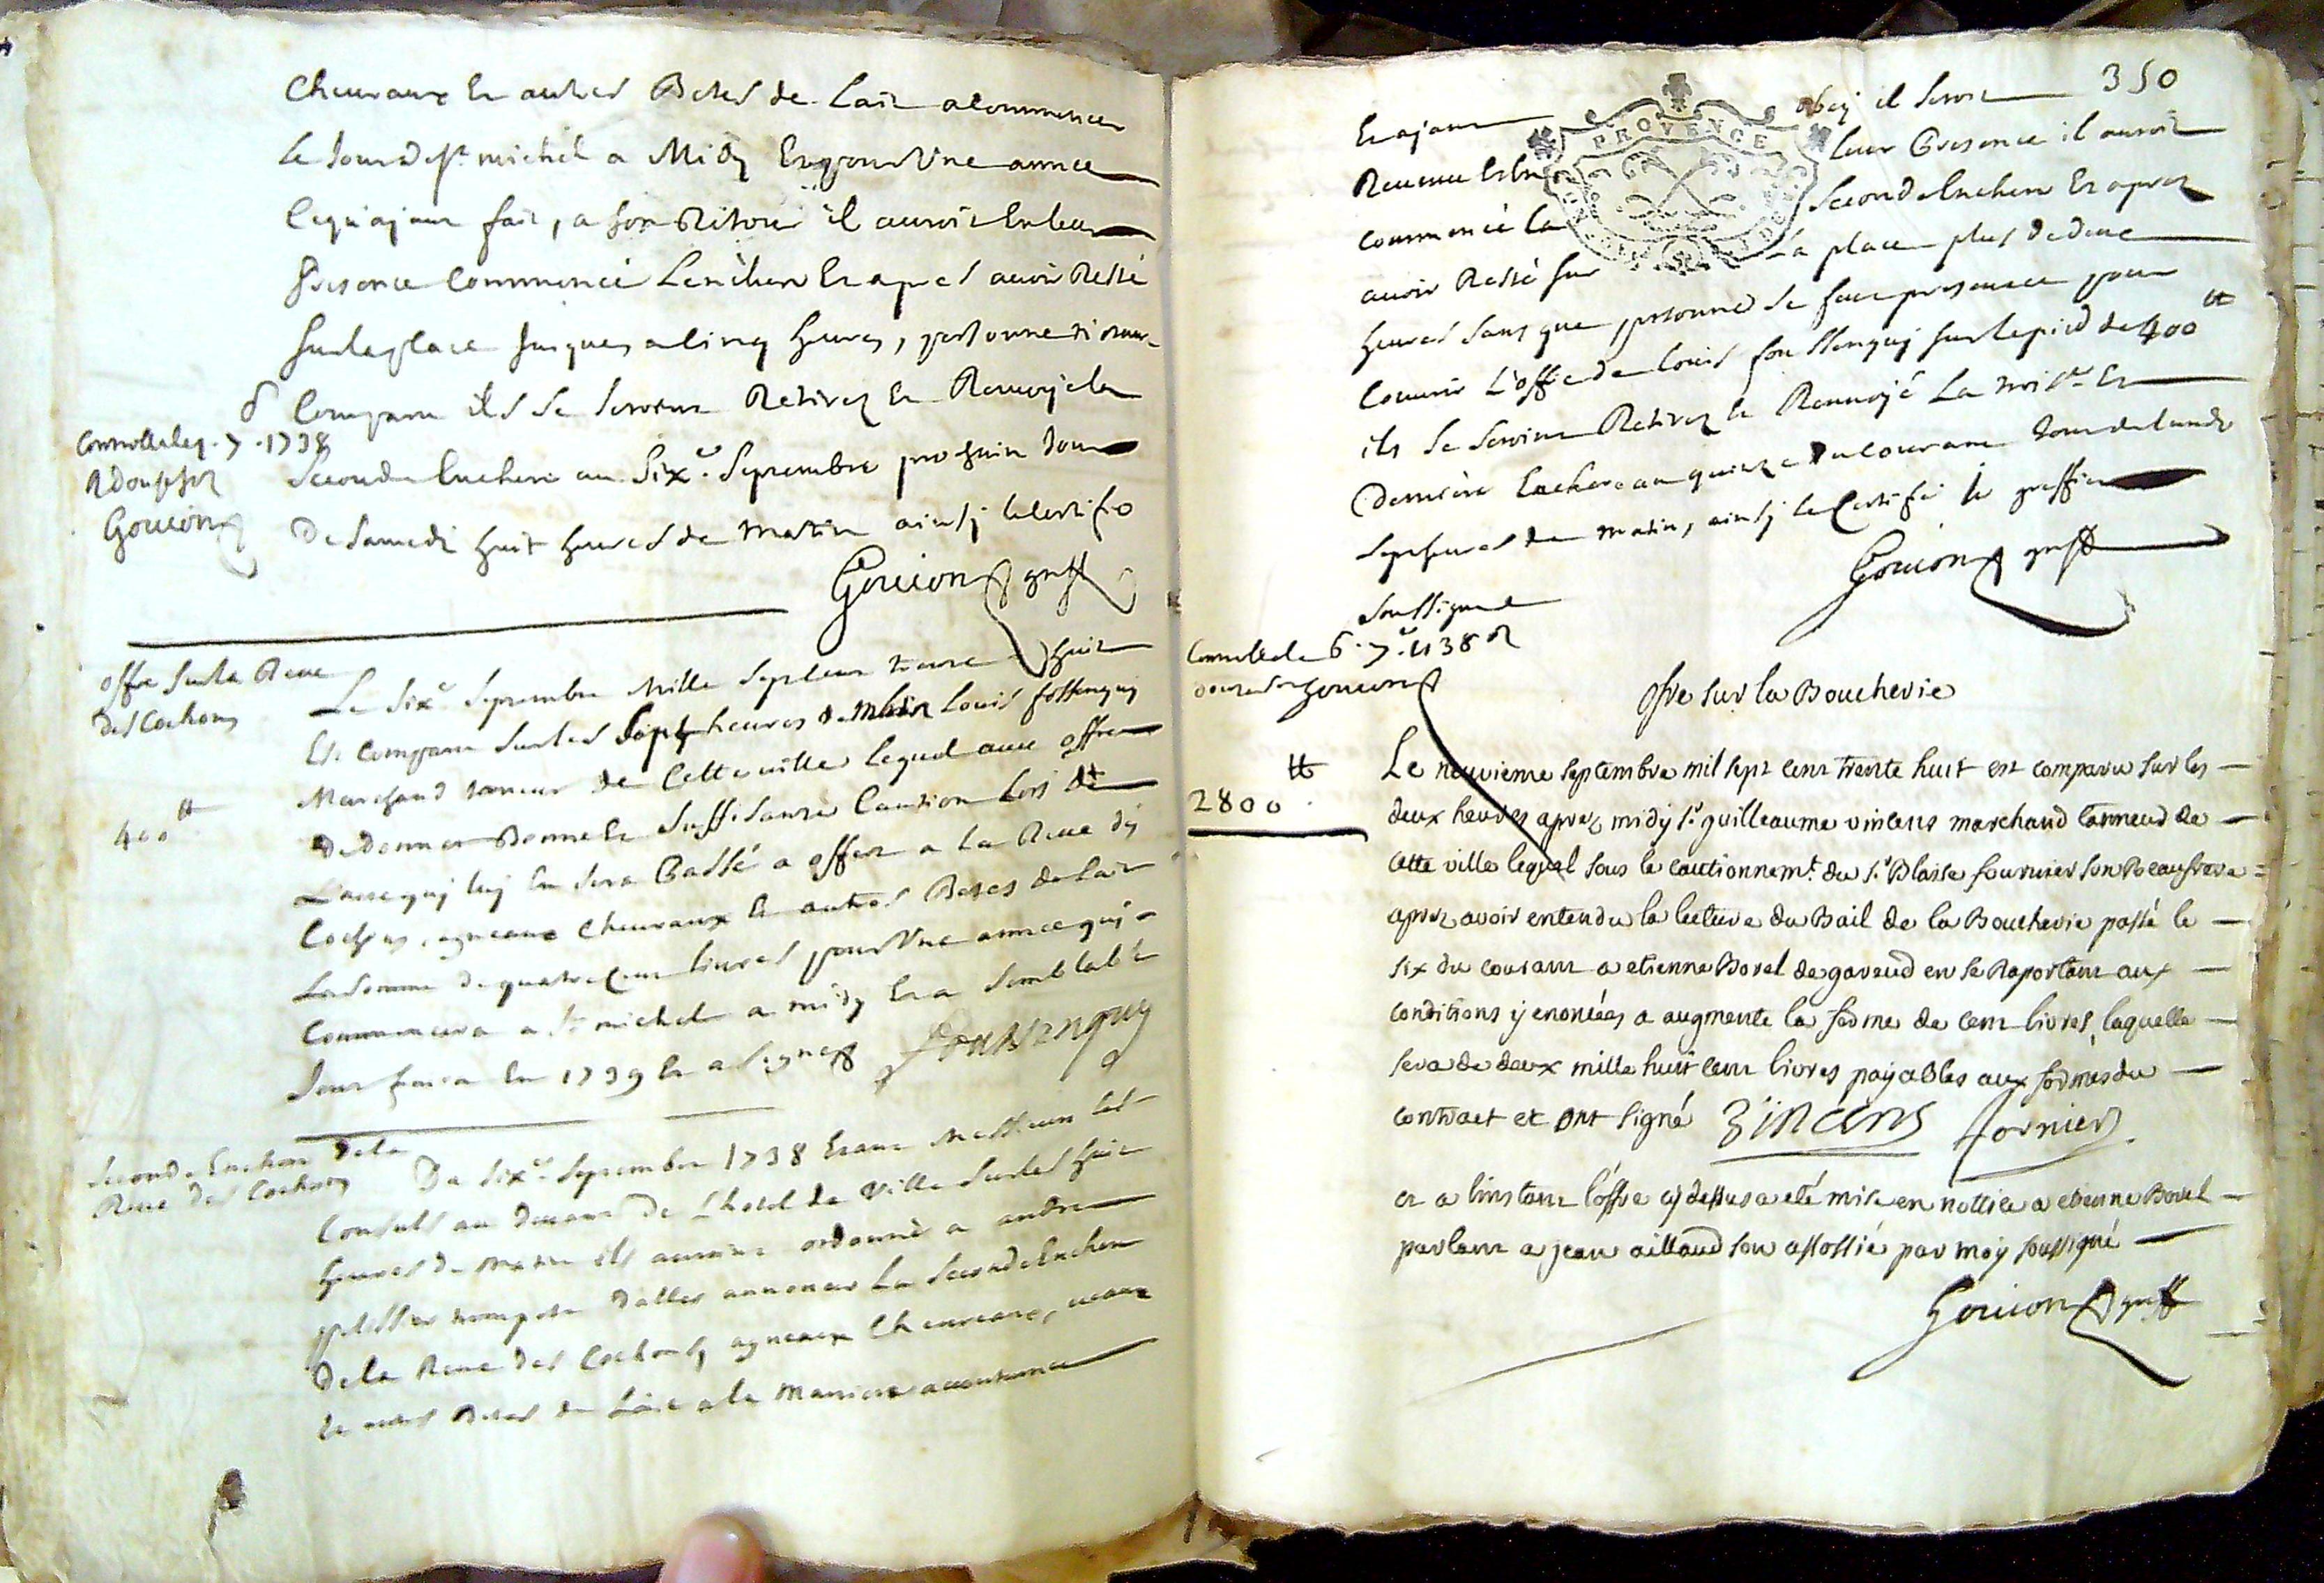 Cheuraux Et autres Betes de Lait a Commencer
le Jour de St. michel a Midy Et pour Vne annee
Ce quj ajant fait, a son Retour il auroit En leur
presence Commencé Lenchere Et apres auoir Resté
sur la place Jusques a Cinq heures, personne
Comparu ils se seroint Retirez Et Renuoyé la
Seconde Enchere au Six.e Septembre prochain Jour
De Samedi huit heures de matin ainsj le Certifie
Goucon greff
Controlle le 9. 7. 1738
R douze sols
Goucon
offre sur la Reue
des Cochons
400 tt
Le Six.e Septembre Mille Sept Cent trente huit
Est Comparu sur les Sept heures de matin Louis foussenquy
Marchand tanneur de Cette uille lequel auec offre
De Donner Bonne Et Suffisante Caution Lors de
L'acte quj luj En sera Passé a offert a la Reue des
Cochons, agneaux Cheuraux Et autres Betes de Lait
La Somme de quatre Cent liures pour Vne annee quj
Commencera a St michel a midy Et a Semblable
Jour finira En 1739 Et a Signe Foussenquy
Seconde Enchere De la
Reue des Cochons
Du Six.e Septembre 1738 Etant Messieurs les
Consuls au deuant De L'hotel de Ville sur les huit
heures de matin ils auroint ordonné a andre
trompete D'aller annoncer La Seconde Enchere
De la Reue des Cochons, agneaux Cheureaux, ueaux
Et autres Betes de Lait a la Maniere accoutumee
350
Et ajant obej il seroit
Reuenu Et En leur Presence il auroit
PROVENCE
commencé la Seconde Enchere Et apres
auoir Resté sur La place plus de deux
heures sans que personne se soit presentee pour
Couurir L'offre de Louis foussenquj sur le pied de 400 tt
ils se seroint Retirez Et Renuoyé La trois.e Et
Derniere Enchere au quinze Du Courant Jour de Lundi
Sept heures de matin, ainsj le Certifie le greffier
Soussigné
Goucon greff
Controlle le 6. 7. 1738 R
douze sols Goucon
offre sur la Boucherie
2800 tt
Le neuvieme septembre mil sept cent trente huit est comparu sur les
deux heures aprez midy sr. guilleaume vincens marchand tanneur de
cette ville lequel sous le cautionnemt. du sr. Blaise fournier son Beaufrere
aprez avoir entendu la lecture du Bail de la Boucherie passé le
six du courant a etienne Borel de gareud en se Raportant aux
conditions y enoncées a augmenté la ferme de cent livres, laquelle
sera de deux mille huit cent livres payables aux formes du
contract et ont signé Vincens fornier
et a linstant l'offre cy dessus a eté mise en nottice a etienne Borel
parlant a jean aillaud son assossié par moy soussigné
Goucon greff